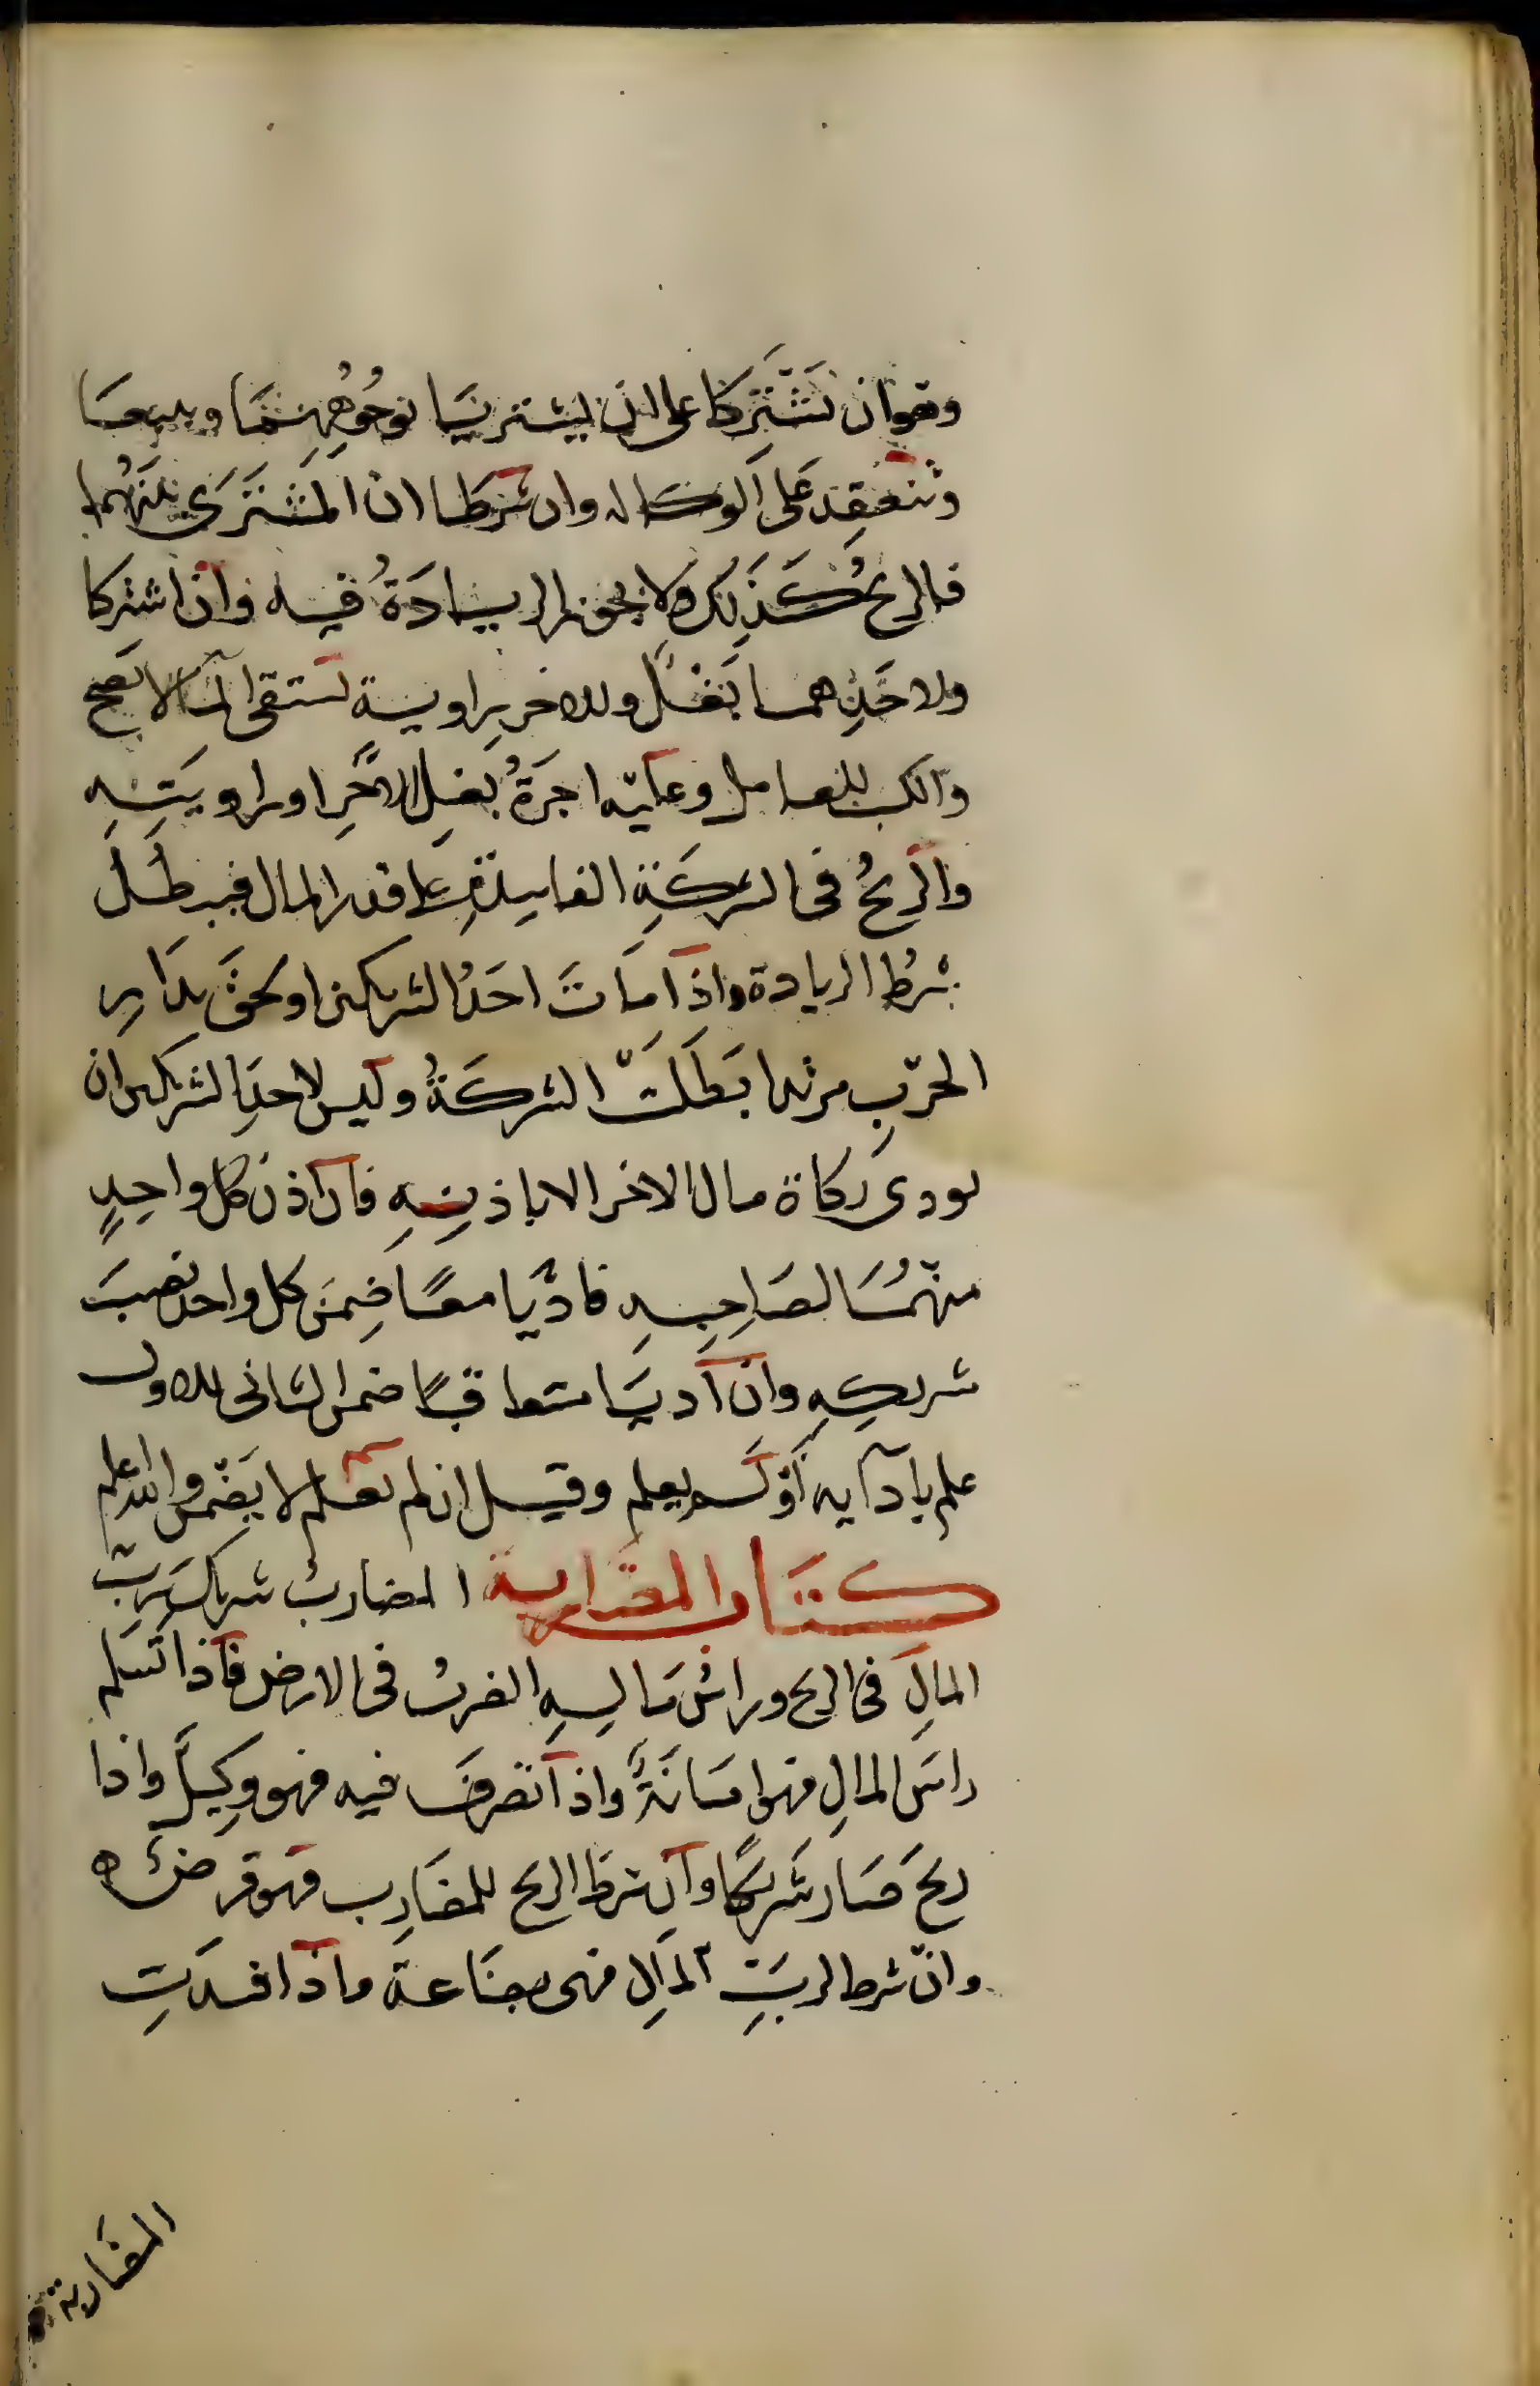 وهو ان تَشْتَرِكا على ان يشتريَا بوُجُوهِهِمَا ويبيعَا
وتنعقِد عَلى الوكاله وان شَرَطَا ان المشْتَرَى بَيْنَهُمَا
فالربحُ كَذَلِكَ ولا يجوز الزيادَةُ فيه وان اشتركا
ولاحَدِهما بَغْلٌ وللاخر راوية تستقى الماء لا تصح
والكسب للعامل وعليه اجرَةُ بغلِ الآخَرِ او راويَتِهِ
والرِبحُ فى الشركَةِ الفاسِدَةِ على قدر المال فيبطلُ
شرطُ الزيادة واذا مَاتَ احَدُ الشريكين او لحِقَ بدَارِ
الحرْبِ مرتدا بَطَلَتْ الشركَةُ وليس لاحدِ الشريكين ان
يودى زكاة مال الاخر الا باذنِهِ فان اذن كل واحِدٍ
منهُمَا لصَاحِبِهِ فادّيَا معًا ضِمنَ كل واحد نصيبَ
شريكِهِ وان ادّيَا متعاقبًا ضمن الثانى للاول
علم بادآيه أوْ لم يعلم وقيل ان لم يعلم لا يَضْمن والله اعلم
كتاب المضاربة المضاربُ شريك رَبِّ
المالِ فى الربح وراسُ مَالِهِ الضربُ فى الارض فاذا تسَلم
راسَ المالِ فهو امَانَةٌ واذا تصرفَ فيه فهو وَكِيلٌ واذا
ربحَ صَار شَريكًا وان شرط الربح للمضَارِب فهو قرضٌ ه
وانْ شرط لربِّ المالِ فهى بضَاعة واذا فسدَتِ
المضَاربة